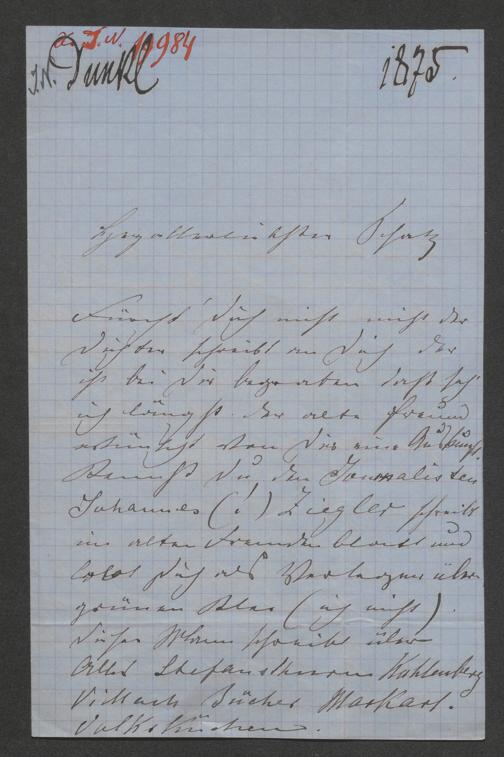 J.N. 11984
J.N. Dunkl 1875.
Herzallerliebster Schatz
Fürcht' Dich nicht nicht der
Dichter schreibt an Dich der
ist bei Dir begraben daß seh'
ich längst. der alte Freund
wünscht von Dir eine Auskunft.
Kennst Du den Journalisten
Johannes (!) Ziegler schreibt
im alten Fremdenblatt und
lobt Dich als Verleger über
grünen Klee (ich nicht).
Dieser Mann schreibt über
Alles Stefansthurm Kahlenberg
Villach Bücher Markart.
Volksküchen.